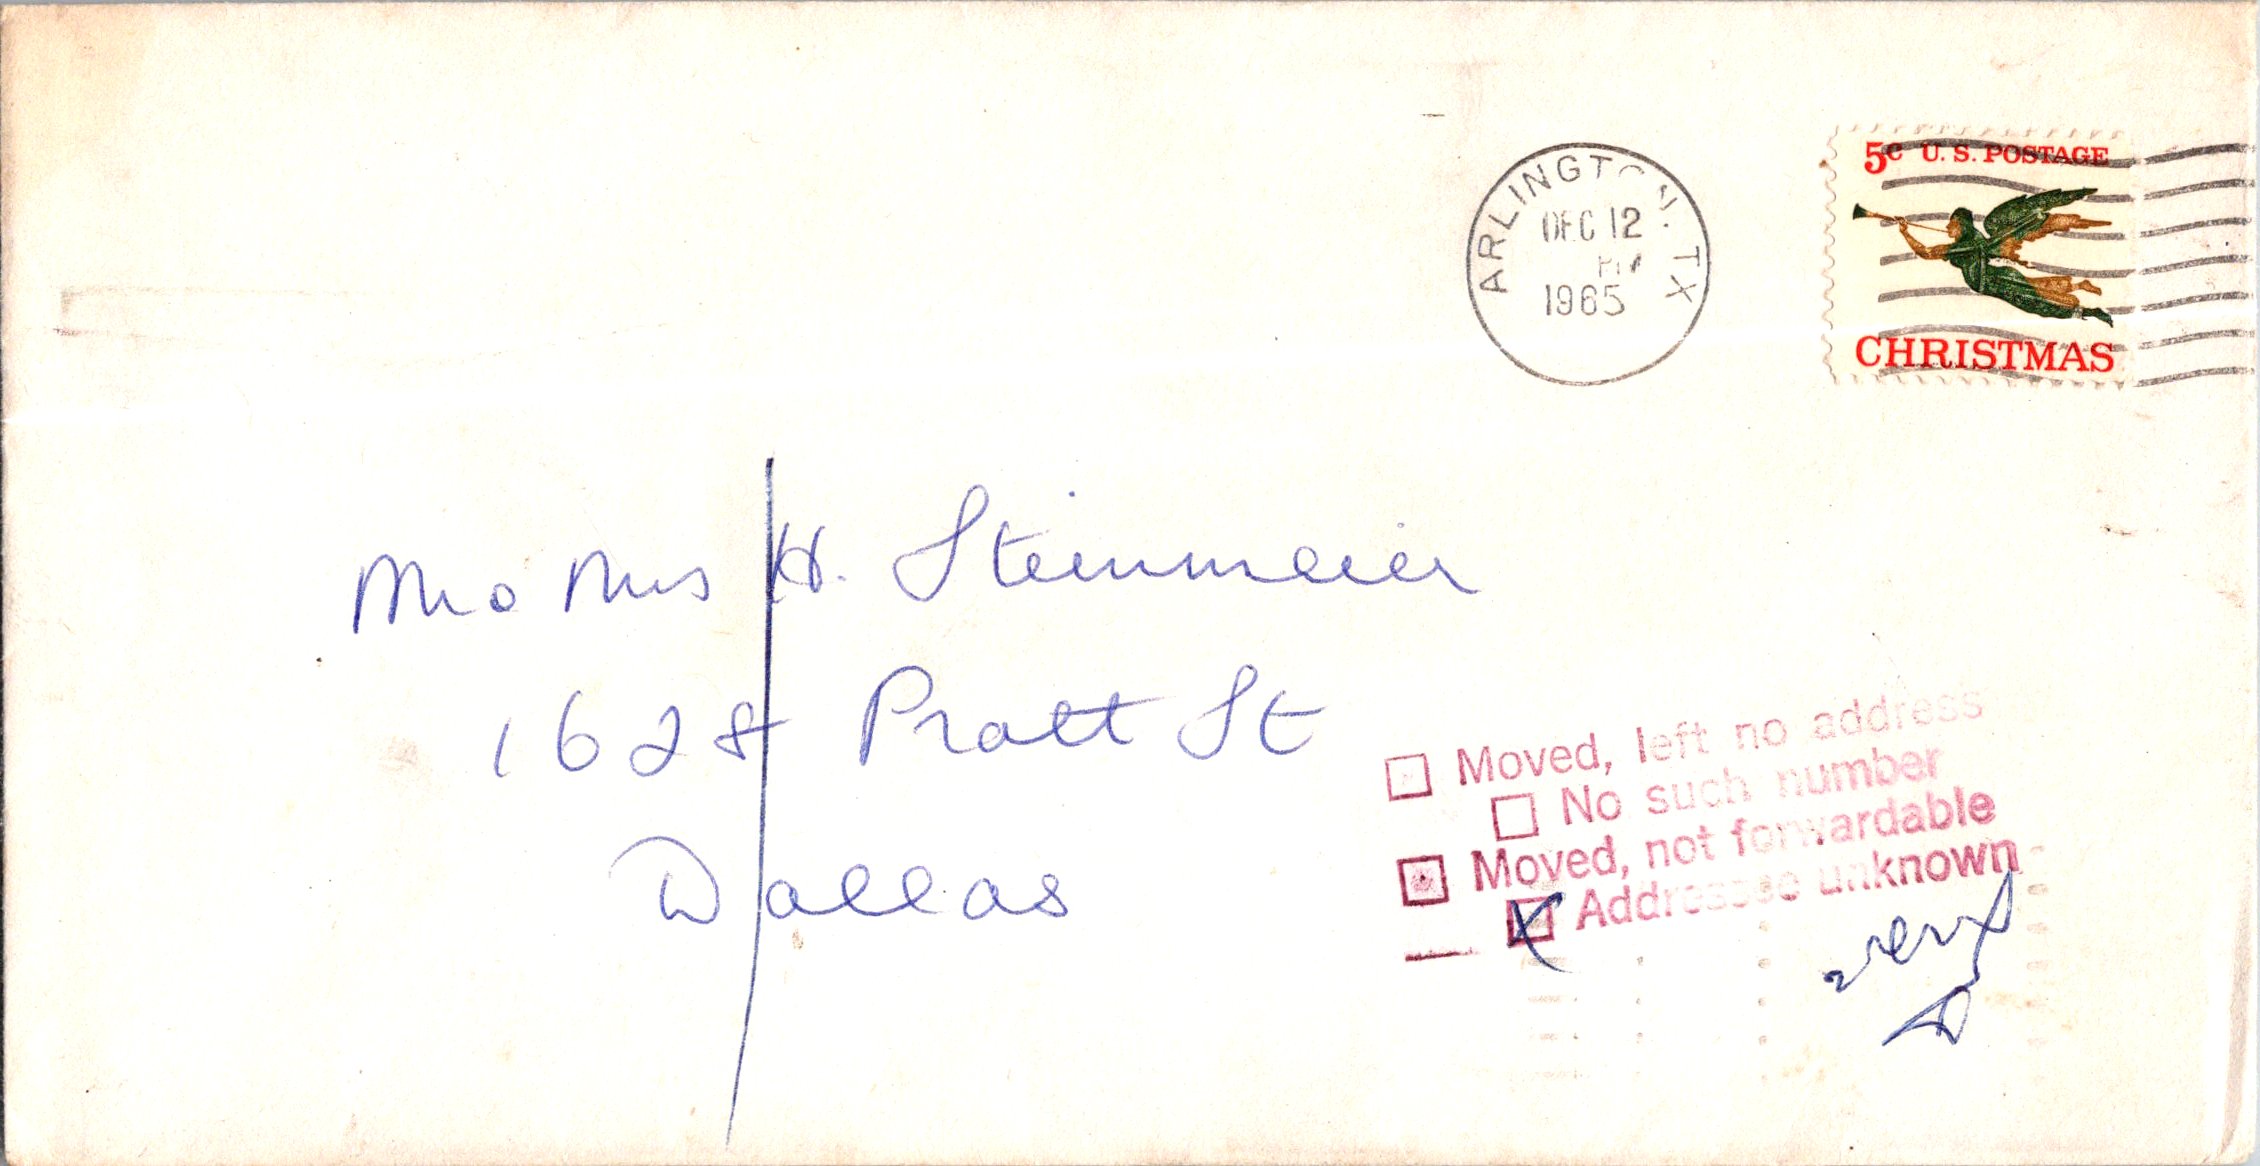 5c U. S. POSTAGE
CHRISTMAS
ARLINGTON. TX
DEC 12
PM
1965
Mr o Mrs H. Steinmeier
1628 Pratt St
Dallas
Moved, left no address
No such number
Moved, not forwardable
Addressee unknown